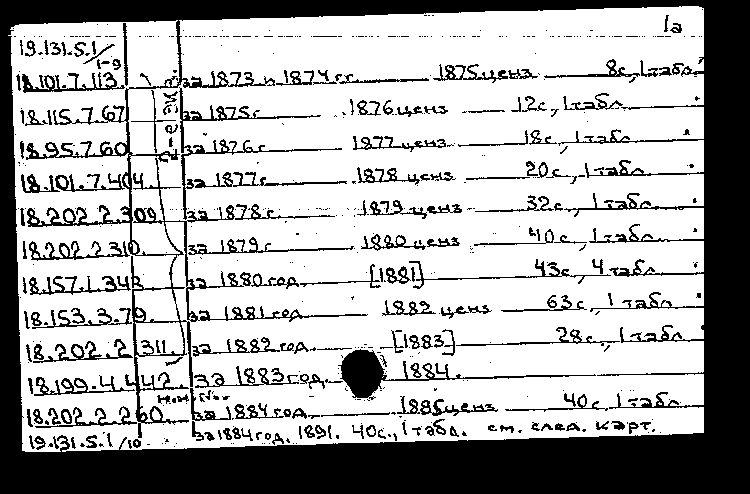 1а
19.131.5.1/1-9
18.101.7.113. за 1873 и 1874 гг. 1875 ценз 8с., 1 табл.
18.115.7.67 за 1875 г. 1876 ценз 12с., 1 табл.
18.95.7.60 за 1876 г. 1877 ценз 18с., 1 табл.
18.101.7.404. за 1877 г. 1878 ценз 20с., 1 табл.
18.202.2.309. за 1878 г. 1879 ценз 32с., 1 табл.
18.202.2.310. за 1879 г. 1880 ценз 40с., 1 табл.
18.157.1.343. за 1880 год. [1881] 43с., 4 табл.
18.153.3.79. за 1881 год 1882 ценз 63с., 1 табл
18.202.2.311. за 1882 год. [1883] 28с., 1 табл
18.199.4.442. за 1883 год. 1884.
18.202.2.260. за 1884 год. 1885 ценз 40с., 1 табл.
19.131.5.1/10 за 1884 год. 1891. 40с., 1 табл. см. след. карт.
2-е экз.